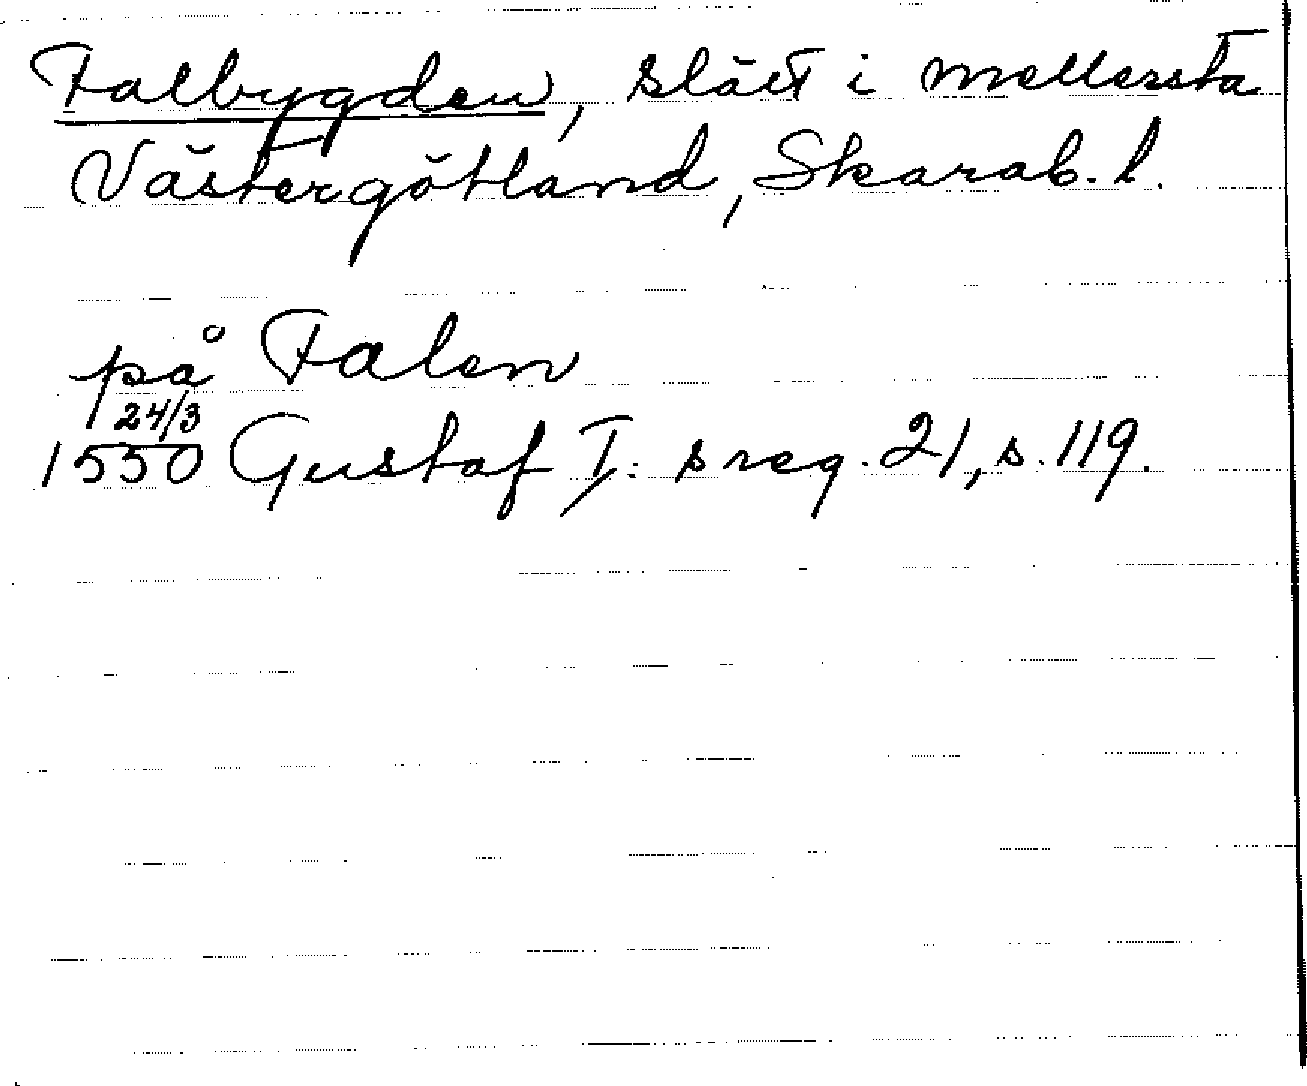 Falbygden, slätt i mellersta
Västergötland, Skarab. l.
på Falen
24/3
1550 Gustaf I: s reg. 21, s. 119.